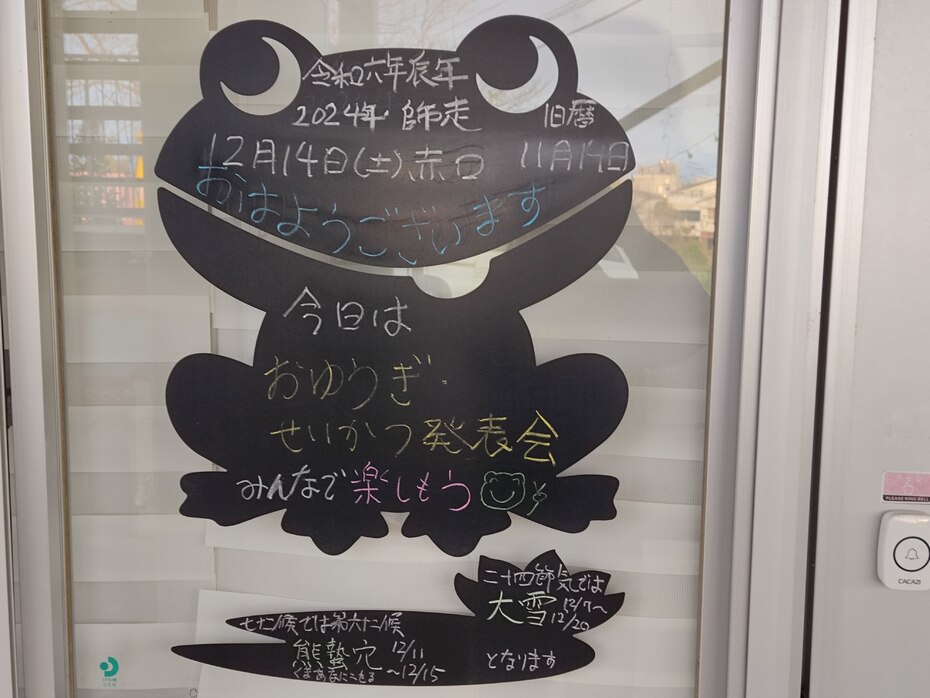 令和六年辰年
2024年 師走 旧暦
12月14日(土)赤口 11月14日
おはようございます
今日は
おゆうぎ
せいかつ発表会
みんなで楽しもう
二十四節気では
大雪 12/7〜
12/20
七十二候では第六十二候
熊蟄穴 12/11
くまあなにこもる 〜12/15
となります
PLEASE RING BELL
CACAZI